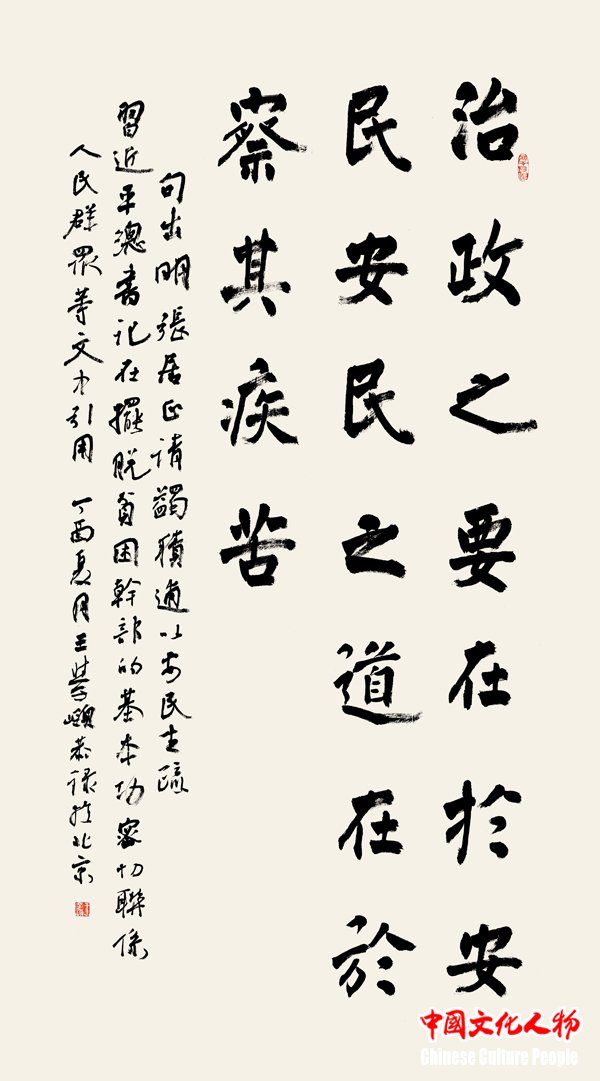 治政之要在於安
民安民之道在於
察其疾苦
句出明張居正請蠲積逋以安民生疏
習近平總書記在擺脫貧困幹部的基本功密切聯係
人民群眾等文中引用 丁酉夏月王學嶺恭録於北京
中國文化人物
Chinese Culture People